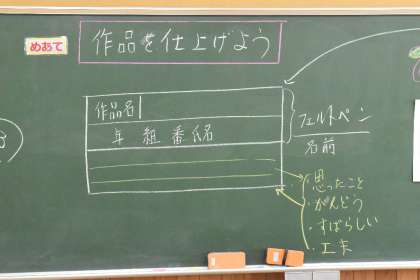 めあて
作品を仕上げよう
作品名
年 組 番 氏名
フェルトペン
名前
・思ったこと
・がんどう
・すばらしい
・工夫